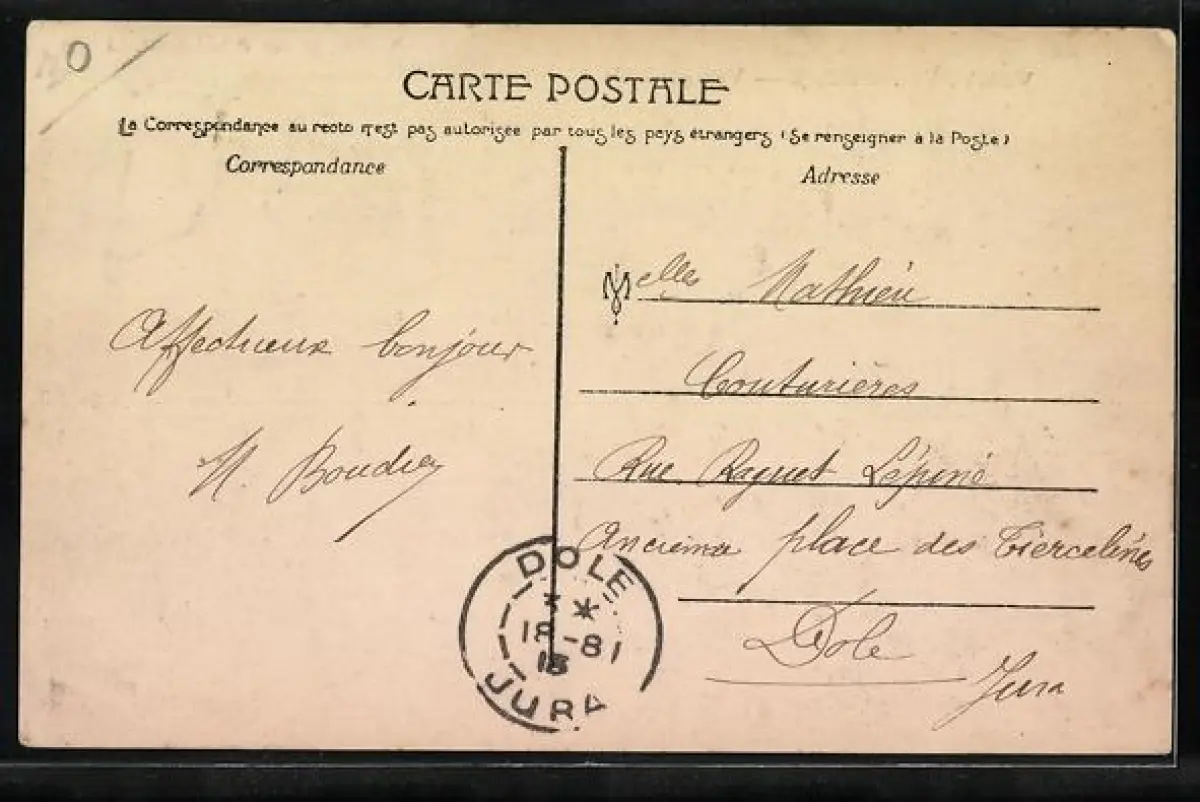 O
CARTE POSTALE
La Correspondance au recto n'est pas autorisée par tous les pays étrangers (Se renseigner à la Poste)
Correspondance
Adresse
Affectueux bonjour
Melles Mathieu
Couturières
Rue Raguet Lépine
Ancienne place des Tiercelines
Dole
Jura
DOLE
18-8
JURA